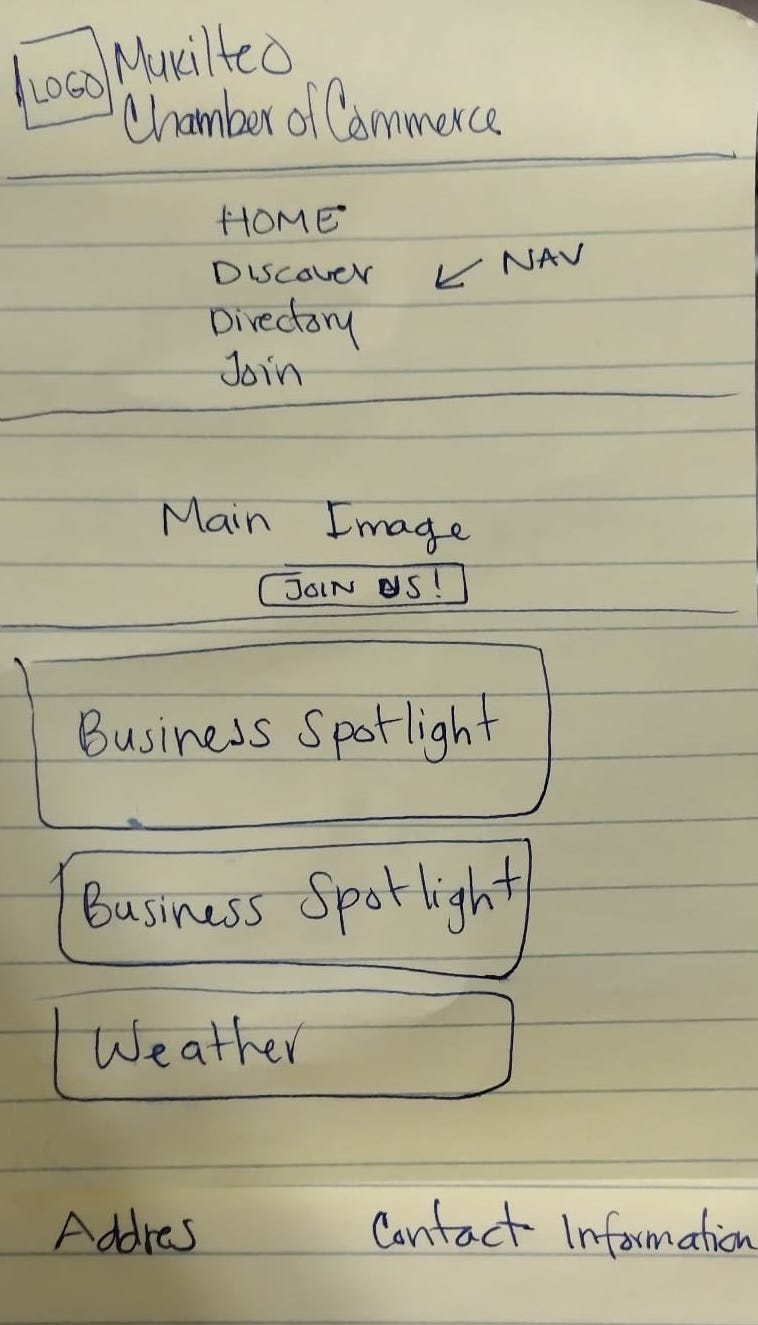 LOGO
Mukilteo
Chamber of Commerce
HOME
Discover
NAV
Directory
Join
Main Image
JOIN US!
Business Spotlight
Business Spotlight
Weather
Addres
Contact Information